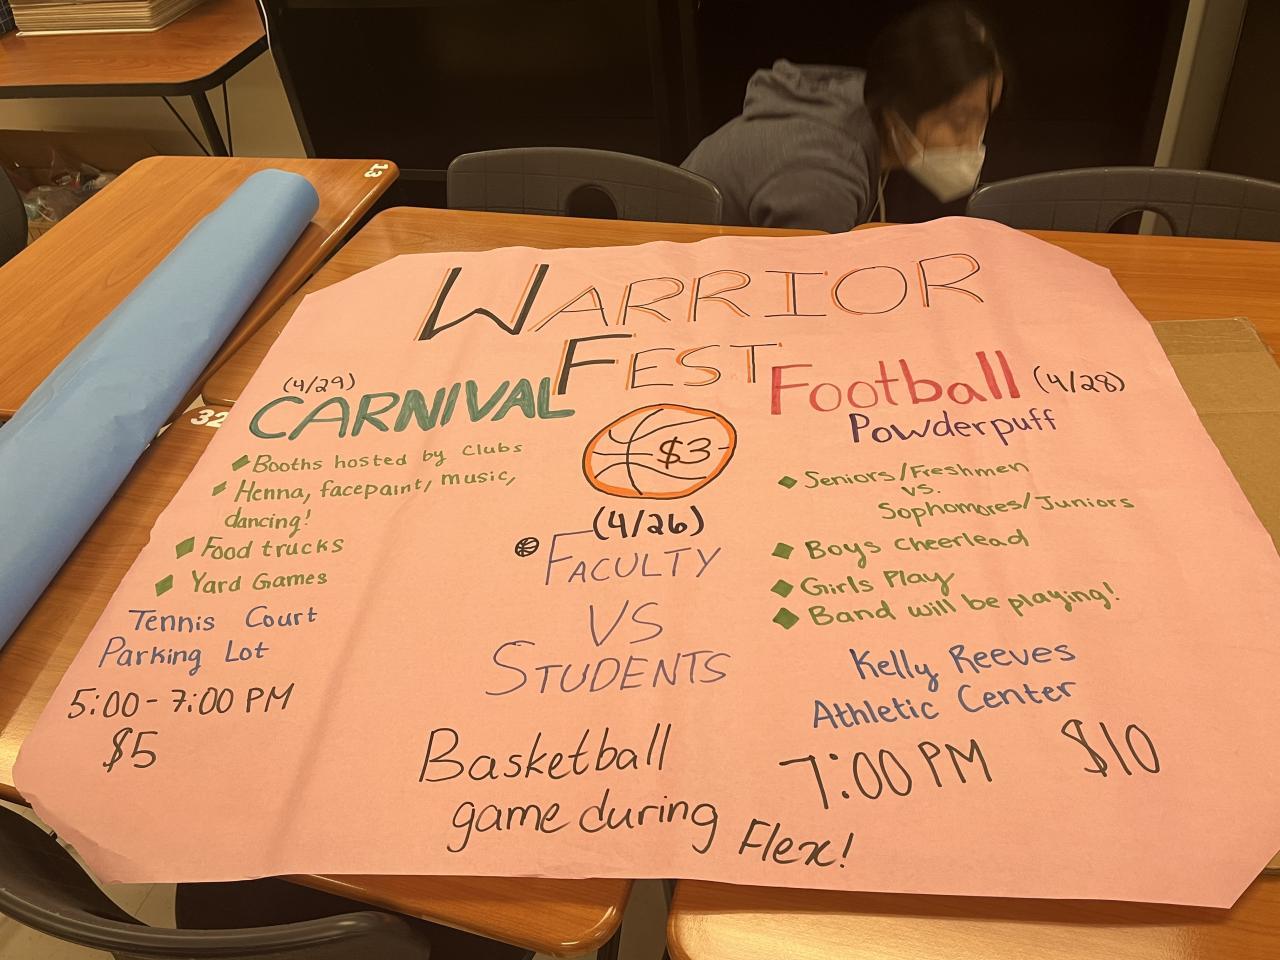 13
32
WARRIOR
FEST
(4/29)
CARNIVAL
Booths hosted by clubs
Henna, facepaint, music,
dancing!
Food trucks
Yard Games
Tennis Court
Parking Lot
5:00-7:00 PM
$5
$3
(4/26)
FACULTY
VS
STUDENTS
Basketball
game during Flex!
Football (4/28)
Powderpuff
Seniors/Freshmen
vs.
Sophomores/Juniors
Boys Cheerlead
Girls Play
Band will be playing!
Kelly Reeves
Athletic Center
7:00 PM $10